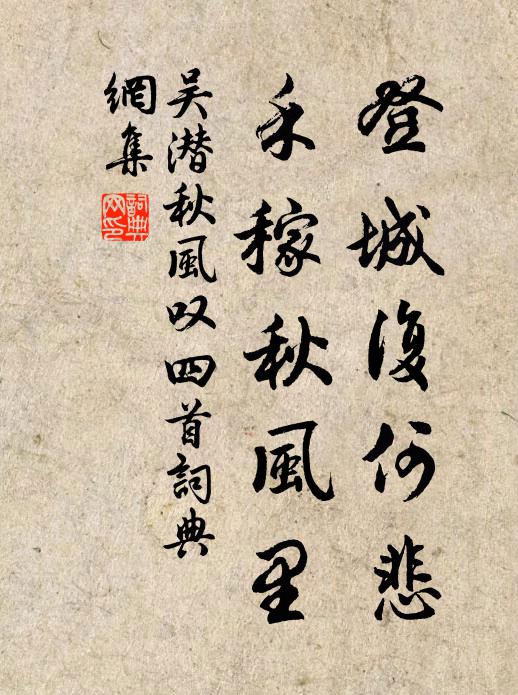 登城復何悲
禾稼秋風里
吴潜秋風叹四首詞典
網集
詞典
网印